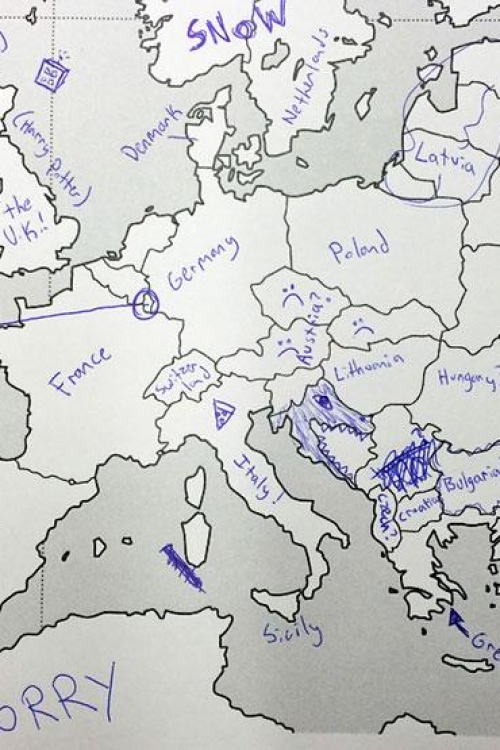 SNOW
Netherlands
Denmark
(Harry Potter)
Latvia
the
U.K.!
Germany
Poland
Austria?
France
Switzer
land
Lithuania
Hungary?
Italy!
Czech?
Croatia
Bulgaria
Sicily
Gre
ORRY